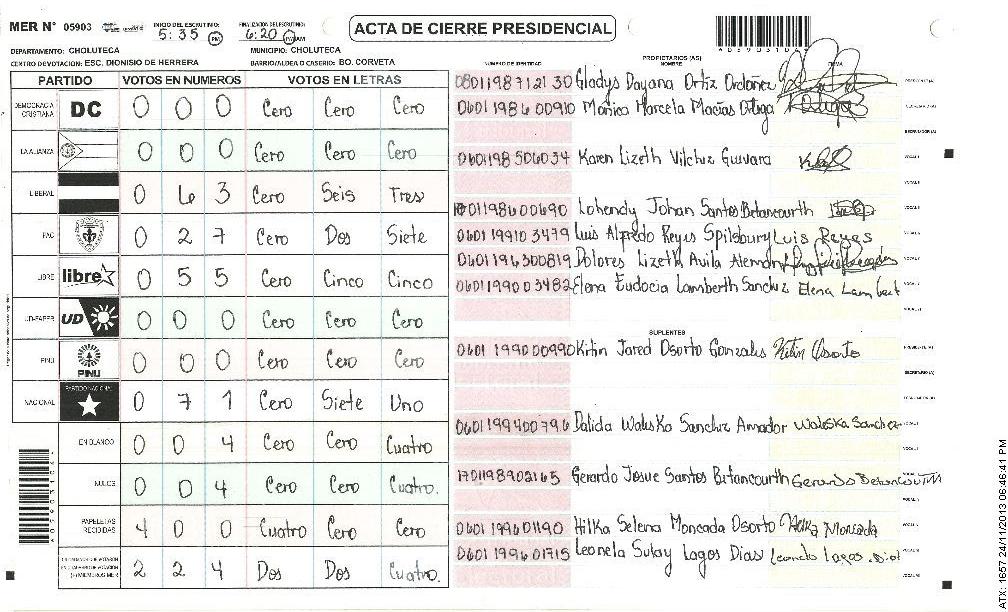 MER N° 05903 INICIO DEL ESCRUTINIO: 5:35 PM FINALIZACION DEL ESCRUTINIO: 6:20 PM/AM ACTA DE CIERRE PRESIDENCIAL
DEPARTAMENTO: CHOLUTECA MUNICIPIO: CHOLUTECA
CENTRO DE VOTACION: ESC. DIONISIO DE HERRERA BARRIO/ALDEA O CASERIO: BO. CORVETA
PARTIDO VOTOS EN NUMEROS VOTOS EN LETRAS
DEMOCRACIA CRISTIANA DC 0 0 0 Cero Cero Cero
LA ALIANZA 0 0 0 Cero Cero Cero
LIBERAL 0 6 3 Cero Seis Tres
PAC 0 2 7 Cero Dos Siete
LIBRE libre 0 5 5 Cero Cinco Cinco
UD-FAPER UD 0 0 0 Cero Cero Cero
PINU PINU 0 0 0 Cero Cero Cero
NACIONAL PARTIDO NACIONAL 0 7 1 Cero Siete Uno
EN BLANCO 0 0 4 Cero Cero Cuatro
NULOS 0 0 4 Cero Cero Cuatro.
PAPELETAS RECIBIDAS 4 0 0 Cuatro Cero Cero
2 2 4 Dos Dos Cuatro.
PROPIETARIOS (AS)
NUMERO DE IDENTIDAD NOMBRE FIRMA
0801198712130 Gladys Dayana Ortiz Ordoñez PRESIDENTE(A)
0601198600910 Monica Marcela Macias Ortega SECRETARIO(A)
ESCRUTADOR(A)
0601198506034 Karen Lizeth Vilchez Guevara VOCAL I
VOCAL II
01198600690 Lohendy Johan Santos Betancourth VOCAL III
0601199103479 Luis Alfredo Reyes Spilsbury Luis Reyes
0601196300819 Dolores Lizeth Avila
0601199003482 Elena Eudocia Lamberth Sanchez Elena Lambert
SUPLENTES
0601199000990 Kirtin Jared Osorto Gonzales PRESIDENTE(A)
SECRETARIO(A)
ESCRUTADOR(A)
0601199400796 Dalida Waleska Sanchez Amador Waleska Sanchez
1701198902165 Gerardo Josue Santos Betancourth Gerardo Betancourth
0601199601190 Hilka Selena Moncada Osorto Hilka Moncada
0601199601715 Leonela Sulay Lagos Dias Leonela Lagos Dias
A05903104
ATX: 1657 24/11/2013 06:46:41 PM